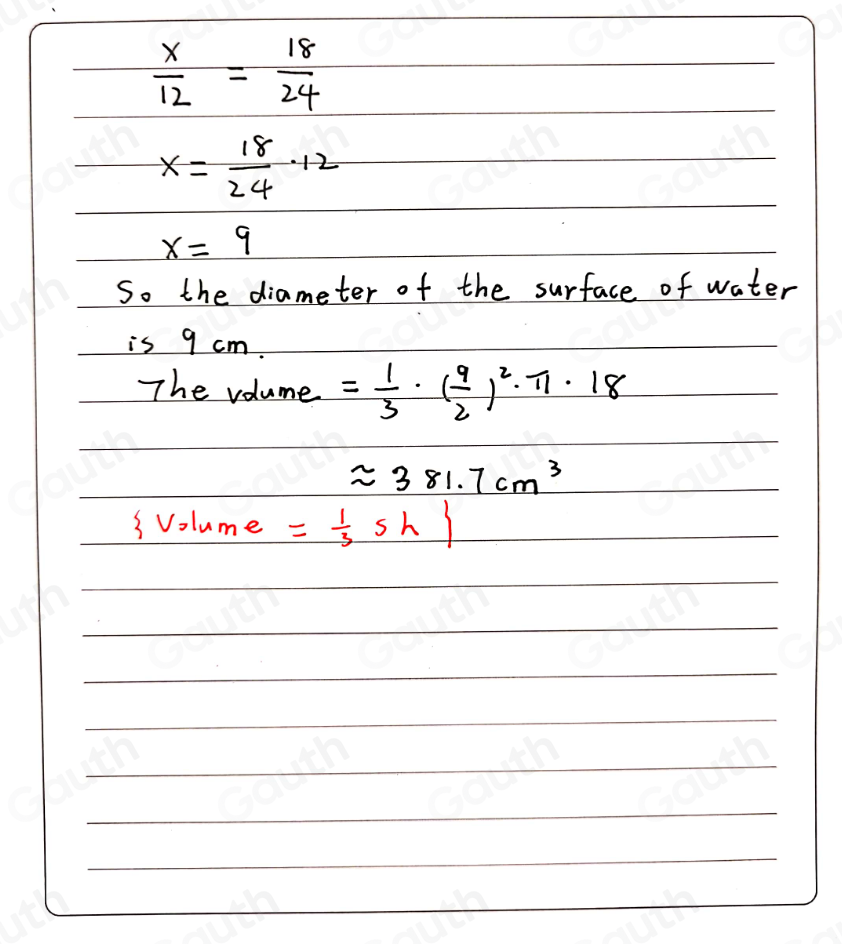 x/12 = 18/24
x = 18/24 · 12
x = 9
So the diameter of the surface of water
is 9 cm.
The volume = 1/3 · (9/2)² · π · 18
≈ 381.7 cm³
{ Volume = 1/3 sh }
Gauth